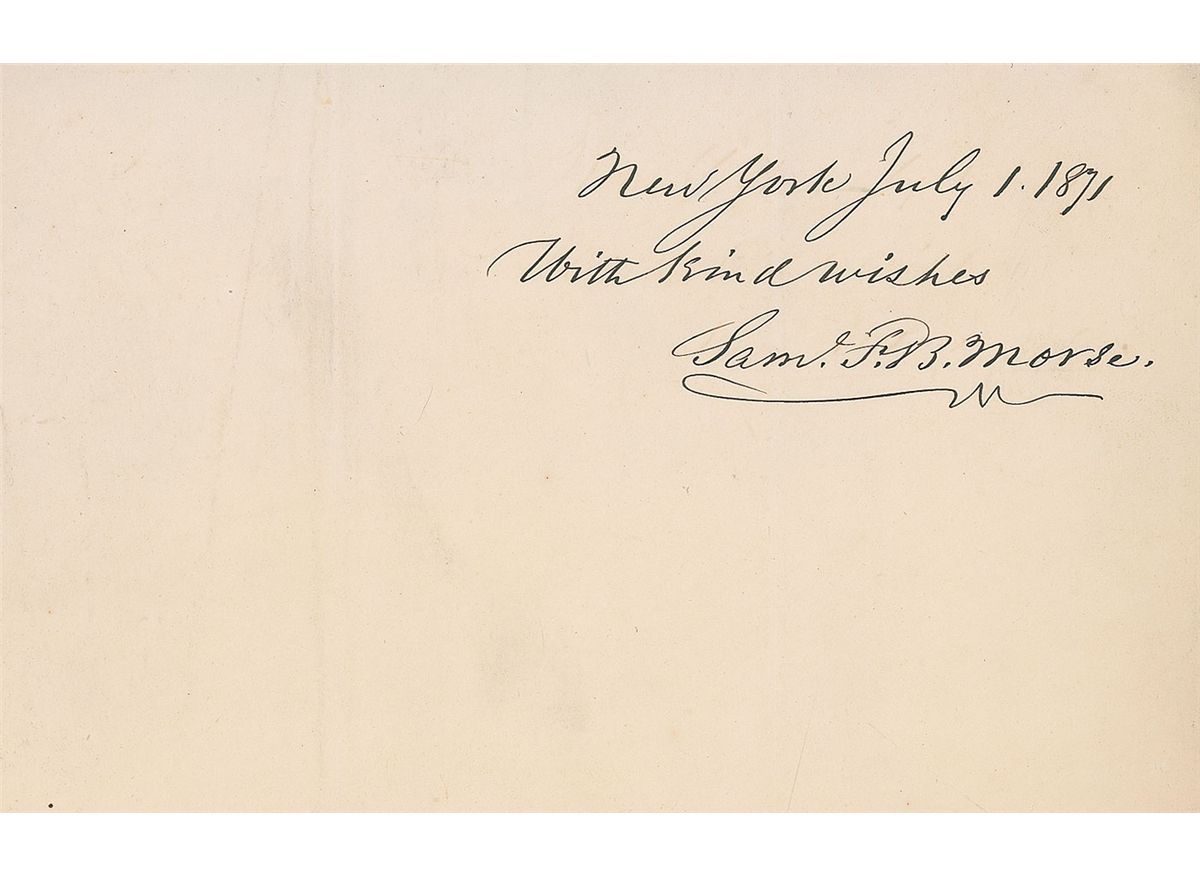 New York July 1. 1871
With kind wishes
Saml. F. B. Morse.